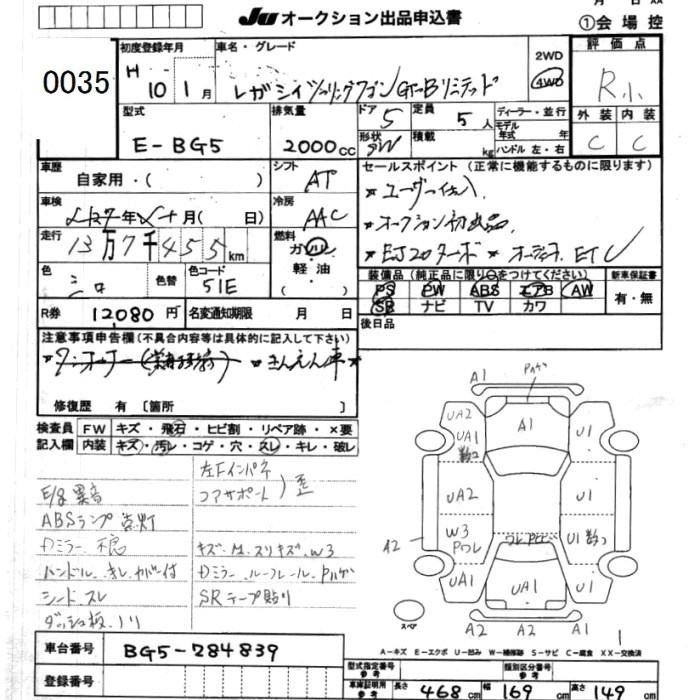 JU オークション出品申込書
①会場控
0035
初度登録年月
H 10年 1月
車名・グレード
レガシイツーリングワゴンGT-Bリミテッド
2WD
4WD
評価点
R小
外装 内装
C C
型式
E-BG5
排気量
2000cc
ドア
5
形状
SW
定員
5人
積載
kg
ディーラー・並行
モデル年式 年
ハンドル 左・右
車歴
自家用・( )
シフト
AT
セールスポイント (正常に機能するものに限ります)
★ユーザー仕入
★オークション初出品
★EJ20ターボ ★オーディオ. ETC
車検
年 月( 日)
冷房
AAC
走行
13万7千455km
燃料
ガソリン
軽油
( )
色
シロ
色替
色コード
51E
装備品 (純正品に限り○をつけてください)
PS PW ABS エアB AW
SR ナビ TV カワ
新車保証書
有・無
R券
12080円
名変通知期限 月 日
後日品
注意事項申告欄 (不具合内容等は具体的に記入して下さい)
★きんえん車★
修復歴 有〔箇所 〕
検査員記入欄
FW キズ・飛石・ヒビ割・リペア跡・×要
内装 キズ・汚レ・コゲ・穴・スレ・キレ・破レ
左Fインパネ
コアサポート)歪
E/g異音
ABSランプ点灯
Dミラー不良
キズ・凹・スリキズ・W3
ハンドル・キレ・カバー付
Dミラー・ルーフレール・Pハゲ
シート・スレ
SRテープ貼り
ダッシュ板・ノリ
A1
Pハゲ
UA2
UA1
数コ
A1
U1
UA2
U1
W3
Pワレ
U1数コ
A2
UA1
UA1
U1
スペア
A2 A2
1
A-キズ E-エクボ U-凹み W-補修跡 S-サビ C-腐食 XX-交換済
車台番号
BG5-284839
登録番号
型式指定番号 参考
類別区分番号 参考
車庫証明用 参考
長さ 468cm 幅 169cm 高さ 149cm